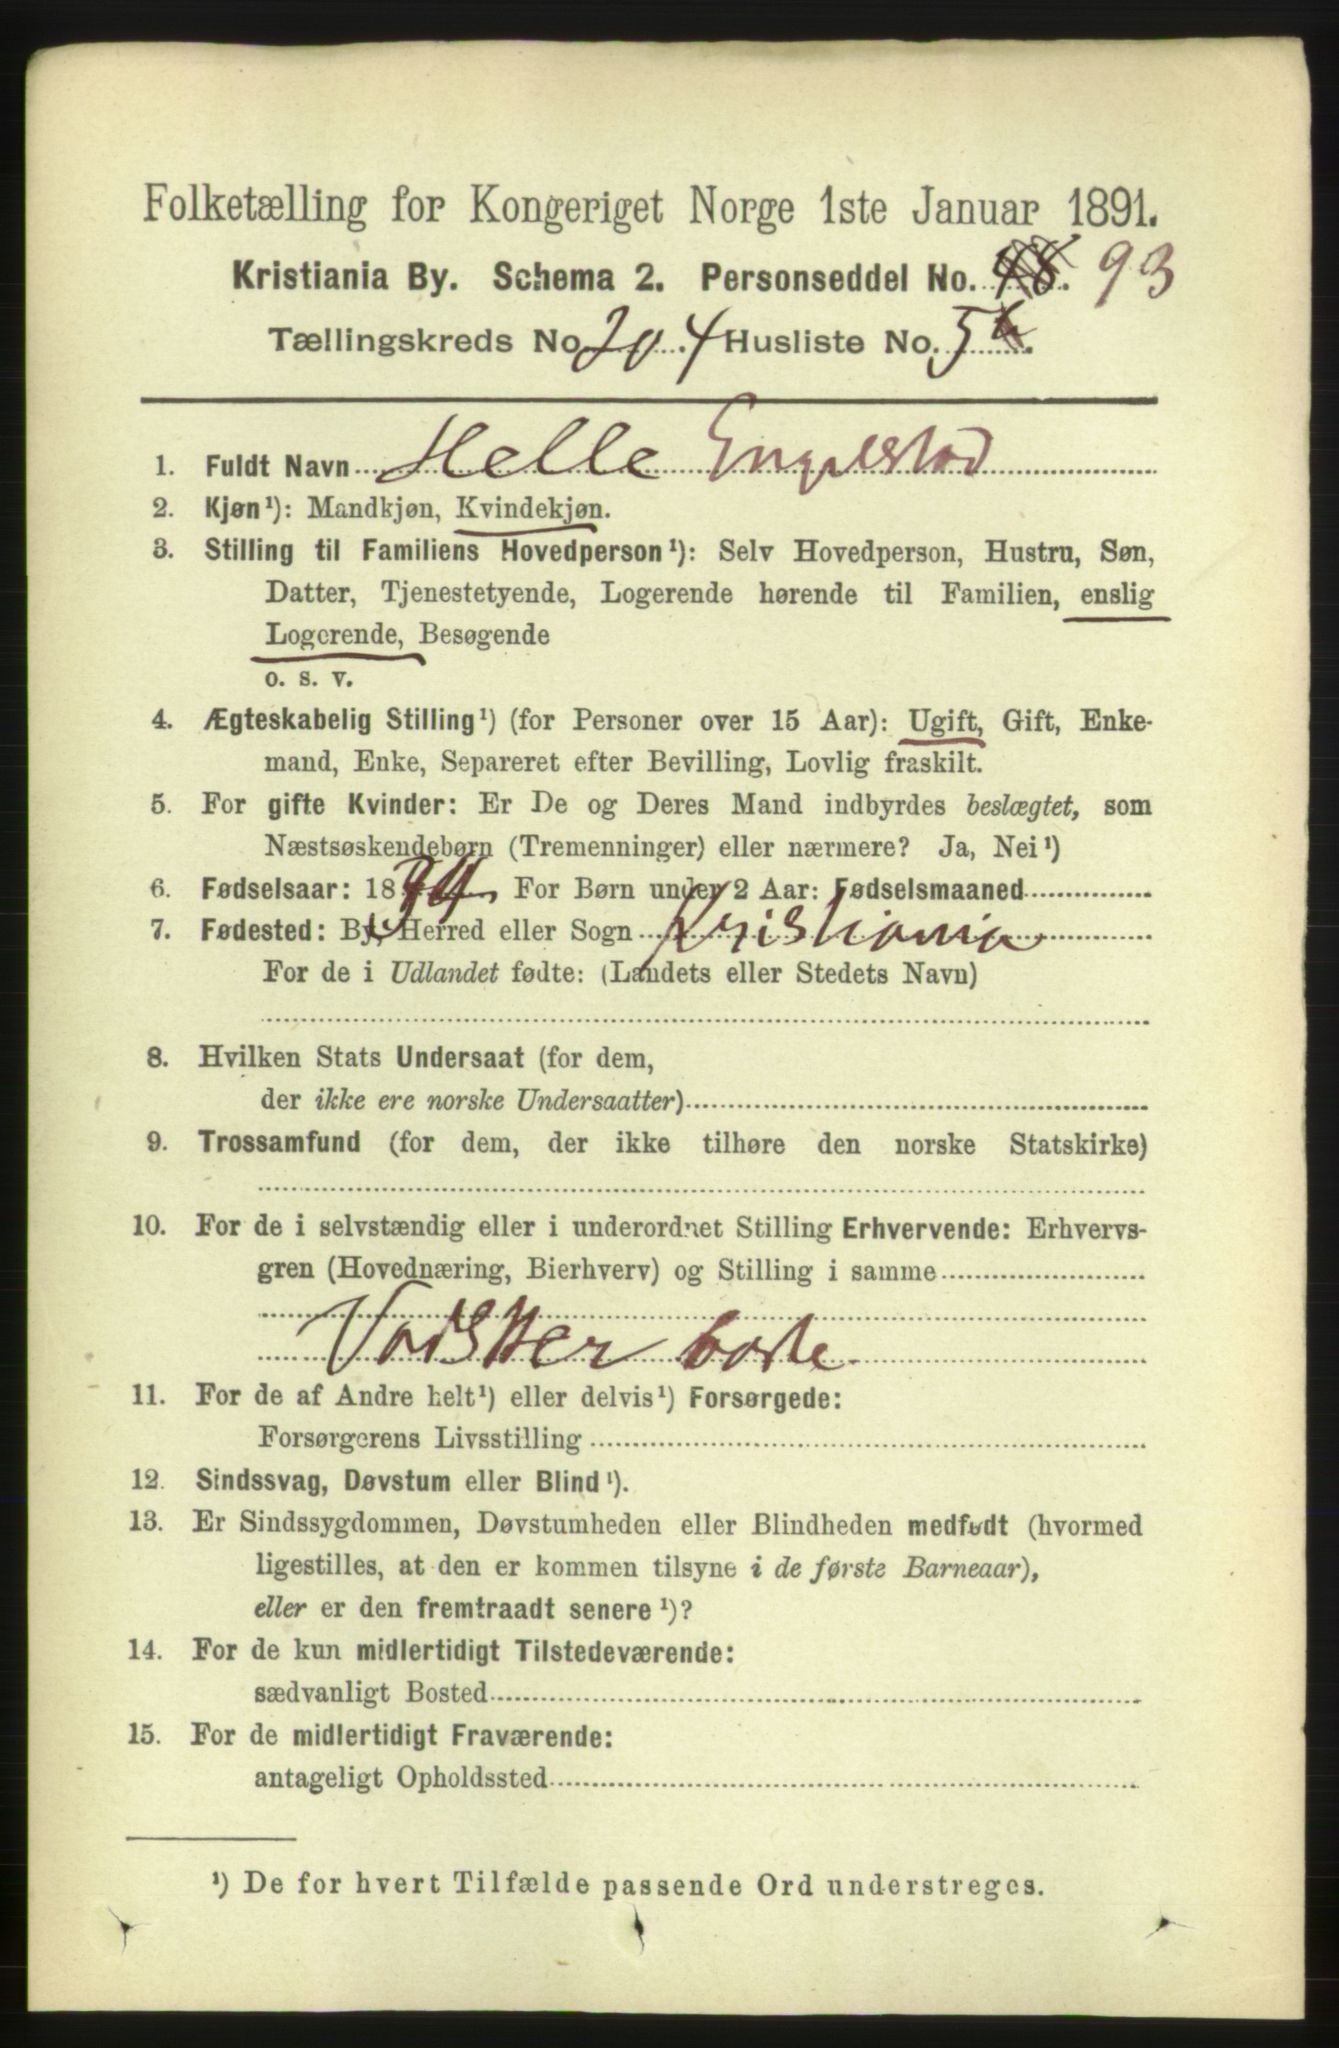 Folketælling for Kongeriget Norge 1ste Januar 1891.
Kristiania By. Schema 2. Personseddel No. 48. 93
Tællingskreds No. 204 Husliste No. 5
1. Fuldt Navn Helle Engelstad
2. Kjøn¹): Mandkjøn, Kvindekjøn.
3. Stilling til Familiens Hovedperson¹): Selv Hovedperson, Hustru, Søn,
Datter, Tjenestetyende, Logerende hørende til Familien, enslig
Logerende, Besøgende
o. s. v.
4. Ægteskabelig Stilling¹) (for Personer over 15 Aar): Ugift, Gift, Enke-
mand, Enke, Separeret efter Bevilling, Lovlig fraskilt.
5. For gifte Kvinder: Er De og Deres Mand indbyrdes beslægtet, som
Næstsøskendebørn (Tremenninger) eller nærmere? Ja, Nei¹)
6. Fødselsaar: 18 For Børn under 2 Aar: Fødselsmaaned
7. Fødested: By, Herred eller Sogn Kristiania
For de i Udlandet fødte: (Landets eller Stedets Navn)
8. Hvilken Stats Undersaat (for dem,
der ikke ere norske Undersaatter)
9. Trossamfund (for dem, der ikke tilhøre den norske Statskirke)
10. For de i selvstændig eller i underordnet Stilling Erhvervende: Erhvervs-
gren (Hovednæring, Bierhverv) og Stilling i samme
11. For de af Andre helt¹) eller delvis¹) Forsørgede:
Forsørgerens Livsstilling
12. Sindssvag, Døvstum eller Blind¹).
13. Er Sindssygdommen, Døvstumheden eller Blindheden medfødt (hvormed
ligestilles, at den er kommen tilsyne i de første Barneaar),
eller er den fremtraadt senere¹)?
14. For de kun midlertidigt Tilstedeværende:
sædvanligt Bosted
15. For de midlertidigt Fraværende:
antageligt Opholdssted
¹) De for hvert Tilfælde passende Ord understreges.